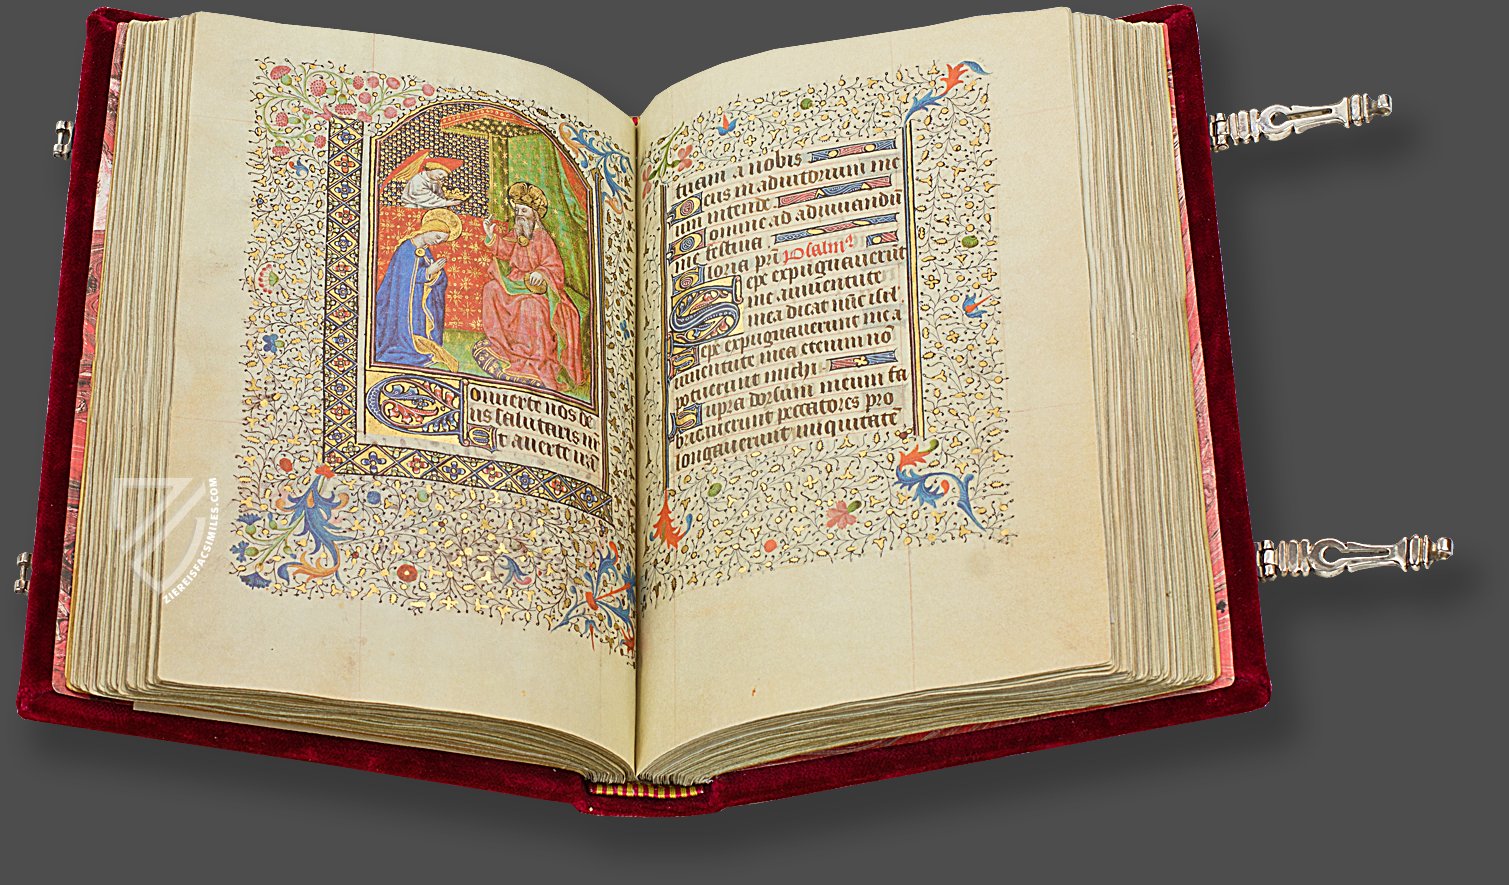 Conuerte nos de
us salutaris nr̄
Et auerte irā
ZIEREISFACSIMILES.COM
tuam a nobis
Deus in adiutorium me
um intende
Domine ad adiuuandū
me festina
Gloria pr̄i Psalm9
Sepe expugnauerūt
me a iuuentute
mea dicat nūc isrl
Sepe expugnauerunt me a
iuuentute mea etenim nō
potuerunt michi
Supra dorsum meum fa
bricauerunt peccatores pro
longauerunt iniquitatē